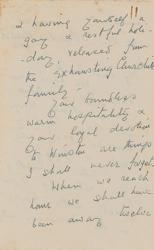 & having yourself a
gay & restful holi-
day, released from
the exhausting Churchill
family!!
Your boundless
warm hospitality &
your loyal devotion
to Winston are things
I shall never forget.
When we reach
home we shall have
been away twelve